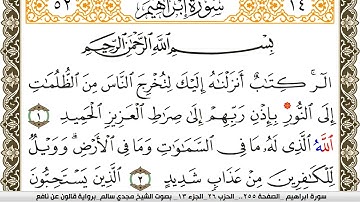 ٥٢ سُورَةُ إِبْرَاهِيمَ ١٤
بِسْمِ اللَّهِ الرَّحْمَٰنِ الرَّحِيمِ
الٓرۚ كِتَٰبٌ أَنزَلْنَٰهُ إِلَيْكَ لِتُخْرِجَ النَّاسَ مِنَ الظُّلُمَاتِ
إِلَى النُّورِ بِإِذْنِ رَبِّهِمْ إِلَىٰ صِرَٰطِ الْعَزِيزِ الْحَمِيدِ ١
اللَّهُ الَّذِى لَهُۥ مَا فِى السَّمَٰوَٰتِ وَمَا فِى الْأَرْضِۗ وَوَيْلٌ
لِّلْكَٰفِرِينَ مِنْ عَذَابٍ شَدِيدٍ ٢ الَّذِينَ يَسْتَحِبُّونَ
سورة ابراهيم _ الصفحة ٢٥٥ _ الحزب ٢٦ _ الجزء ١٣ _ بصوت الشيخ مجدي سالم _ برواية قالون عن نافع